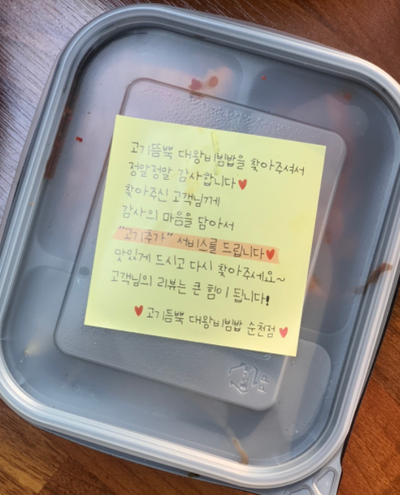 고기듬뿍 대왕비빔밥을 찾아주셔서
정말정말 감사합니다♥
찾아주신 고객님께
감사의 마음을 담아서
"고기추가" 서비스를 드립니다♥
맛있게 드시고 다시 찾아주세요~
고객님의 리뷰는 큰 힘이 됩니다!
♥고기듬뿍 대왕비빔밥 순천점♥